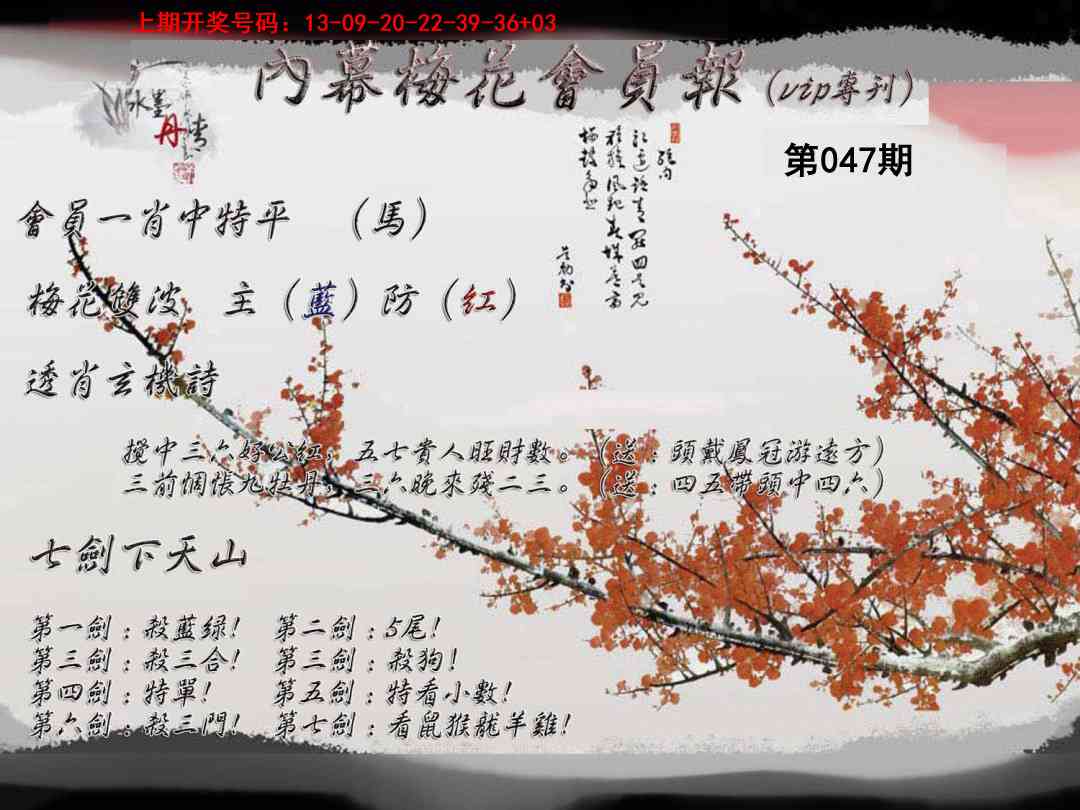 上期开奖号码：13-09-20-22-39-36+03
內幕梅花會員報(vip專刊)
水墨丹青
第047期
會員一肖中特平 （馬）
梅花雙波 主（藍）防（红）
透肖玄機詩
攪中三六好公红；五七貴人旺財數。（送：頭戴鳳冠游遠方）
三前惆悵九牡丹；三六晚來殘二三。（送：四五帶頭中四六）
七劍下天山
第一劍：殺藍绿！ 第二劍：5尾！
第三劍：殺三合！ 第三劍：殺狗！
第四劍：特單！ 第五劍：特看小數！
第六劍：殺三門！ 第七劍：看鼠猴龍羊雞！